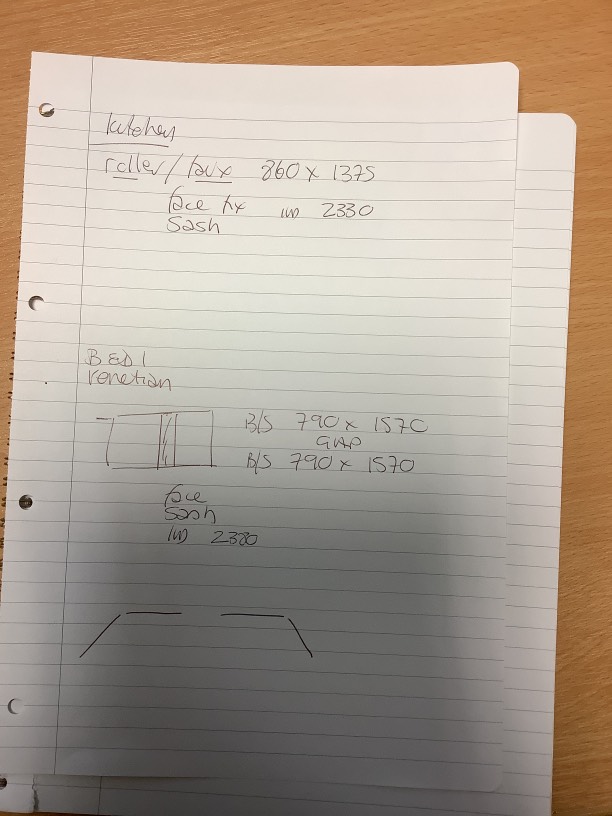 kitchen
roller / faux 860 x 1375
face fix IW 2330
Sash
BED 1
venetian
B/S 790 x 1570
GAP
B/S 790 x 1570
face
Sash
IW 2380